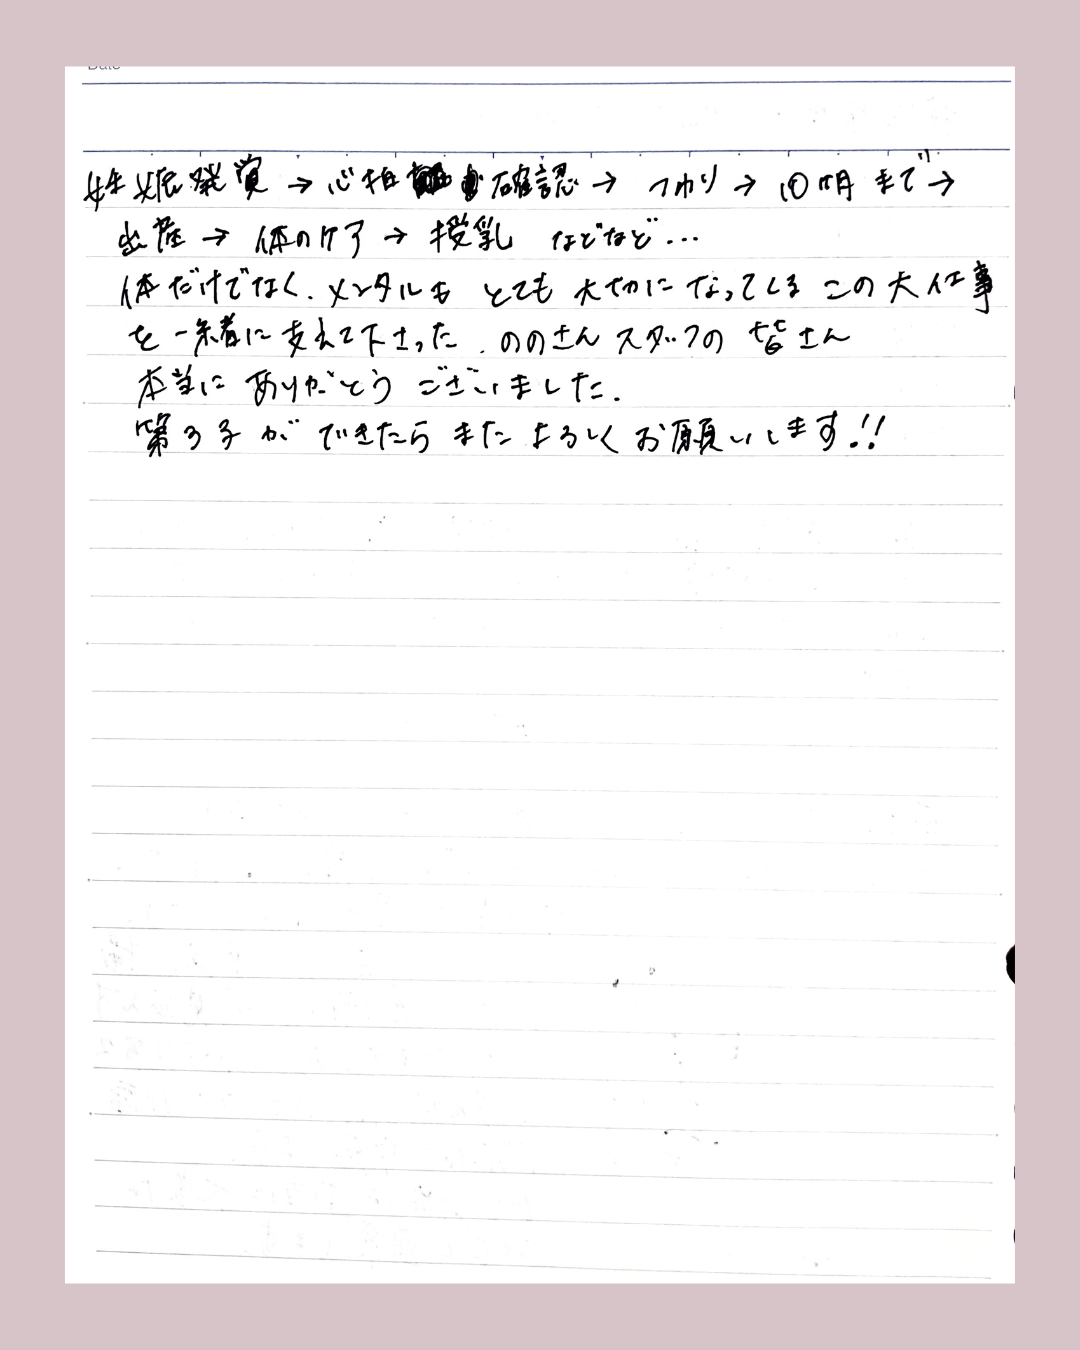 Date
妊娠発覚→心拍確認→つわり→10ヶ月まで→
出産→体のケア→授乳 などなど…
体だけでなく、メンタルも とても 大切に なってくる この 大仕事
を 一緒に 支えて下さった、ののさん スタッフの 皆さん
本当に ありがとう ございました。
第3子が できたら また よろしく お願いします!!